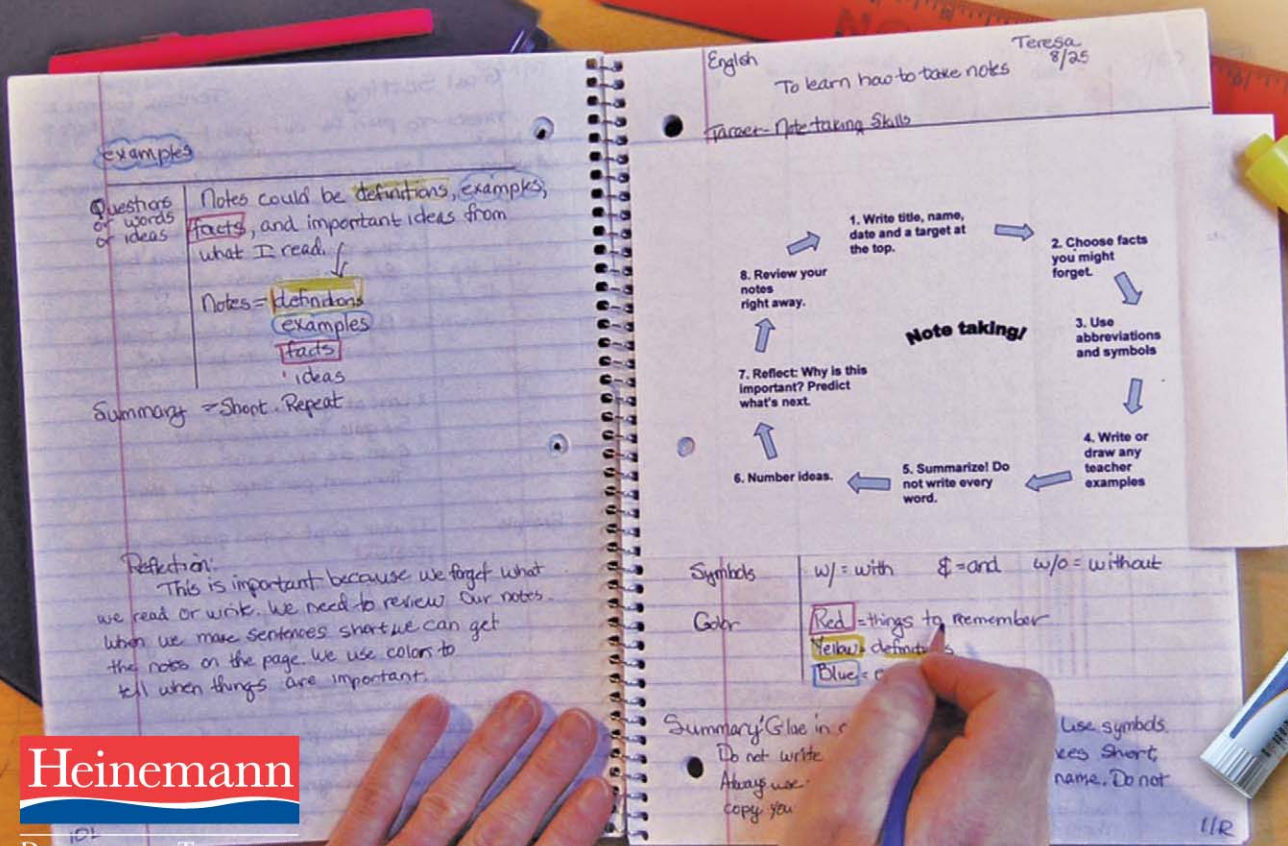 examples
Questions
or words
or ideas
Notes could be definitions, examples,
facts, and important ideas from
what I read.
Notes = definitions
examples
facts
ideas
Summary = Short. Repeat
Reflection:
This is important because we forget what
we read or write. We need to review our notes.
When we make sentences short we can get
the notes on the page. We use colors to
tell when things are important.
Heinemann
English
Teresa
8/25
To learn how to take notes
Target - Note taking Skills
1. Write title, name,
date and a target at
the top.
2. Choose facts
you might
forget.
3. Use
abbreviations
and symbols
4. Write or
draw any
teacher
examples
5. Summarize! Do
not write every
word.
6. Number ideas.
7. Reflect: Why is this
important? Predict
what's next.
8. Review your
notes
right away.
Note taking!
Symbols w/ = with & = and w/o = without
Color Red = things to remember
Yellow =
Blue =
Summary: Glue in Use symbols.
Do not write short,
Always use name. Do not
copy
11R